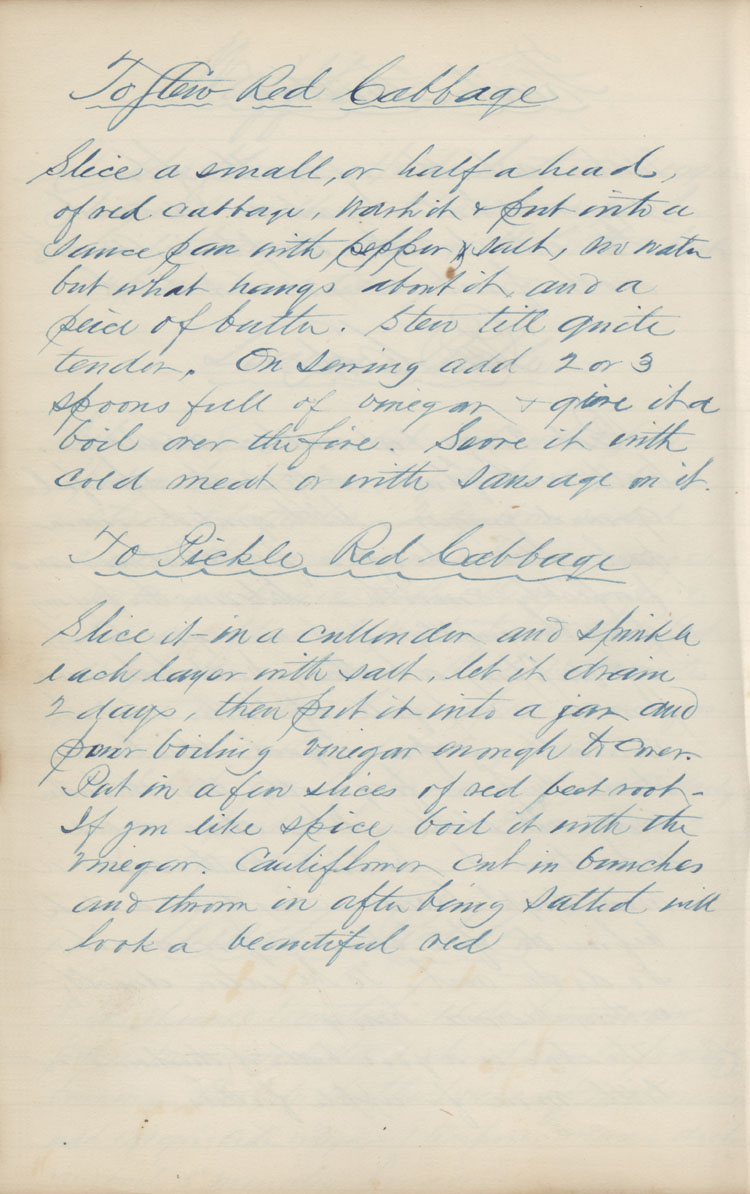 To Stew Red Cabbage
Slice a small, or half a head,
of red cabbage, wash it & put into a
sauce pan with pepper & salt, no water
but what hangs about it, and a
peice of butter. Stew till quite
tender. On serving add 2 or 3
spoons full of vinegar + give it a
boil over the fire. Serve it with
cold meat or with sausage on it.
To Pickle Red Cabbage
Slice it in a cullender and sprinkle
each layer with salt, let it drain
2 days, then put it into a jar and
pour boiling vinegar enough to cover.
Put in a few slices of red beet root -
If you like spice boil it with the
vinegar. Cauliflower cut in bunches
and thrown in after being salted will
look a beautiful red